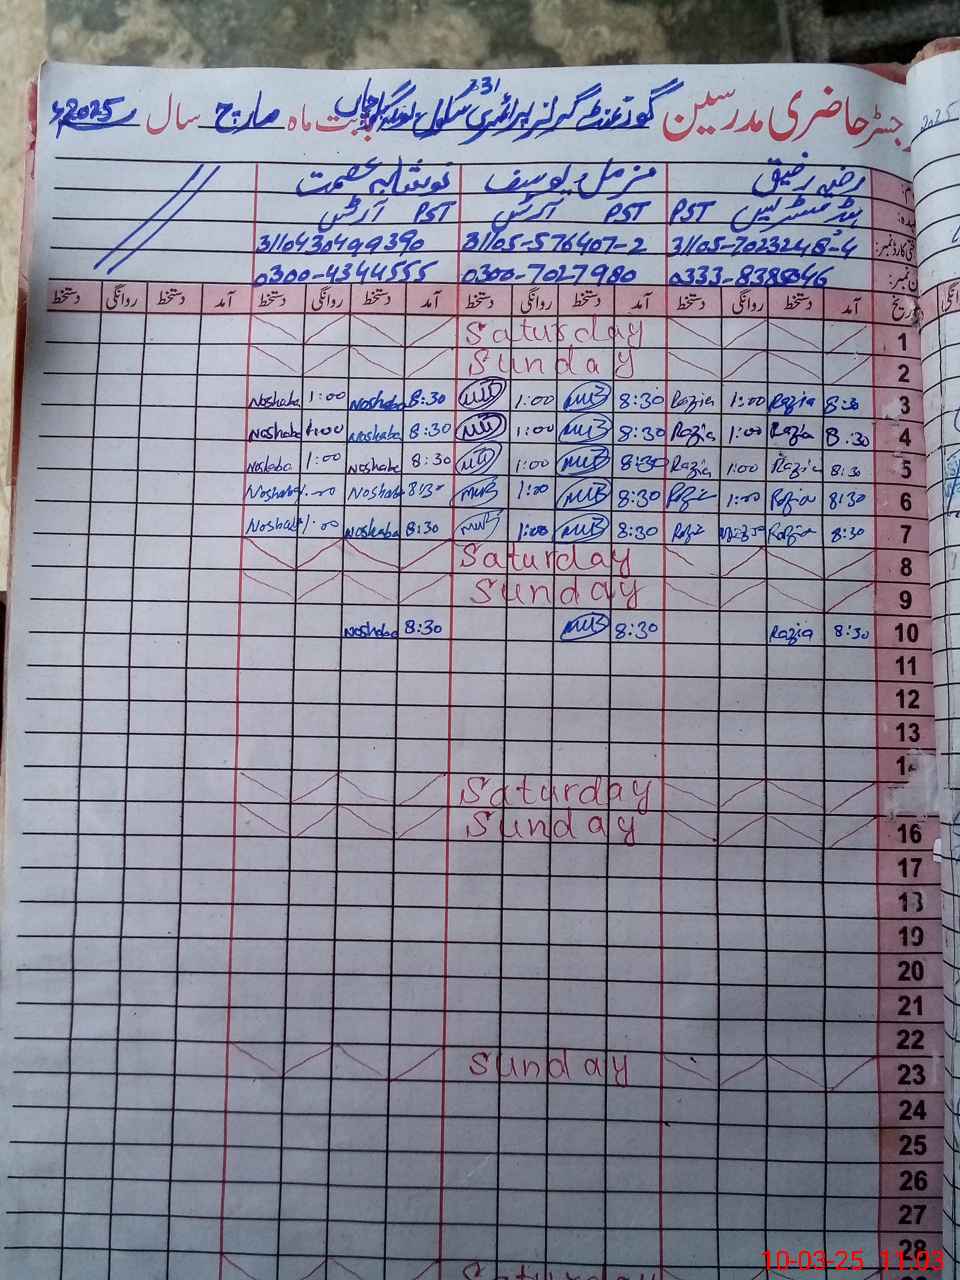 رجسٹر حاضری مدرسین گورنمنٹ گرلز پرائمری سکول بابت ماہ مارچ سال 2025ء
231
رضیہ رفیق مزمل یوسف نوشابہ عصمت
ہیڈ مسٹریس PST PST آرٹس PST آرٹس
شناختی کارڈ نمبر: 31105-7023248-4 31105-576407-2 3110430499390
فون نمبر: 0333-8385046 0300-7027980 0300-4344555
تاریخ آمد دستخط روانگی دستخط آمد دستخط روانگی دستخط آمد دستخط روانگی دستخط آمد دستخط روانگی دستخط
Saturday 1
Sunday 2
Noshaba 1:00 Noshaba 8:30 MUB 1:00 MUB 8:30 Razia 1:00 Razia 8:30 3
Noshaba 1:00 Noshaba 8:30 MUB 1:00 MUB 8:30 Razia 1:00 Razia 8:30 4
Noshaba 1:00 Noshaba 8:30 MUB 1:00 MUB 8:30 Razia 1:00 Razia 8:30 5
Noshaba 1:00 Noshaba 8:30 MUB 1:00 MUB 8:30 Razia 1:00 Razia 8:30 6
Noshaba 1:00 Noshaba 8:30 MUB 1:00 MUB 8:30 Razia Razia 8:30 7
Saturday 8
Sunday 9
Noshaba 8:30 MUB 8:30 Razia 8:30 10
11
12
13
14
Saturday
Sunday 16
17
18
19
20
21
22
Sunday 23
24
25
26
27
28
Saturday
10-03-25 11:03